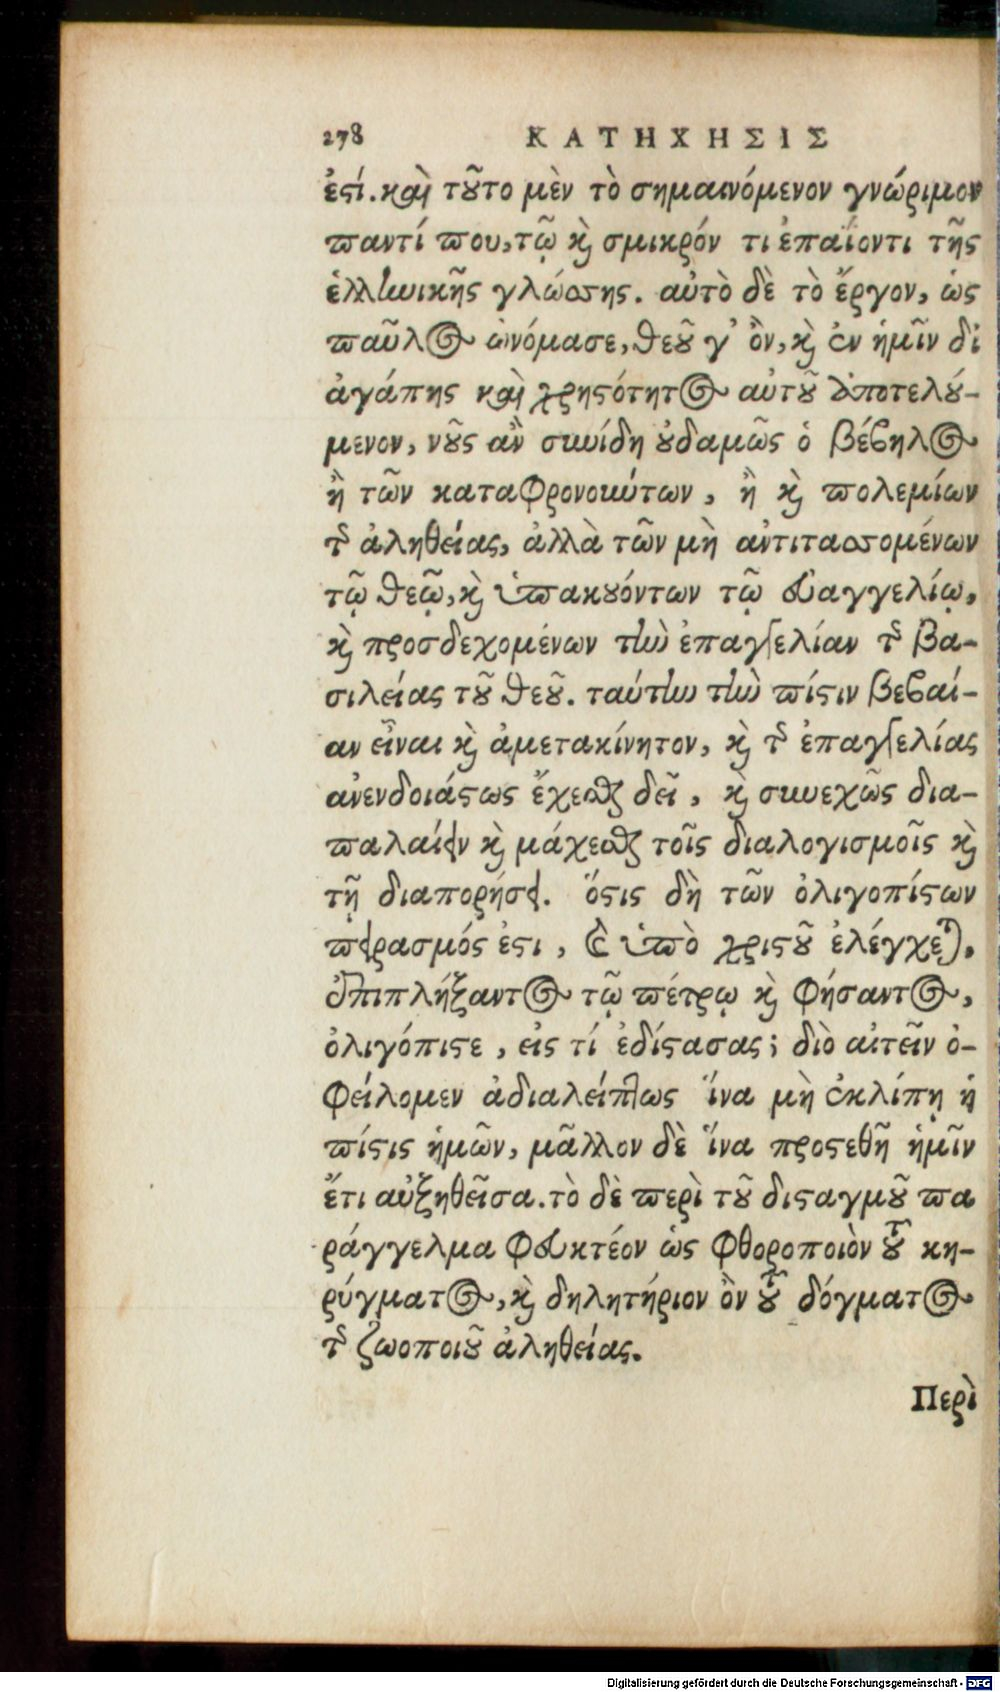 278 ΚΑΤΗΧΗΣΙΣ
ἐϛί. καὶ τοῦτο μὲν τὸ σημαινόμενον γνώριμον
παντί που, τῷ καὶ σμικρόν τι ἐπαΐοντι τῆς
ἑλληνικῆς γλώσσης. αὐτὸ δὲ τὸ ἔργον, ὡς
παῦλος ὠνόμασε, θεοῦ γ' ὂν, καὶ ἐν ἡμῖν δι
ἀγάπης καὶ χρηϛότητος αὐτοῦ ἀποτελού-
μενον, νοῦς ἂν συνίδη οὐδαμῶς ὁ βέβηλος
ἢ τῶν καταφρονούντων, ἢ καὶ πολεμίων
τῆς ἀληθείας, ἀλλὰ τῶν μὴ ἀντιτασσομένων
τῷ θεῷ, καὶ ὑπακουόντων τῷ εὐαγγελίῳ,
καὶ προσδεχομένων τὴν ἐπαγγελίαν τῆς βα-
σιλείας τοῦ θεοῦ. ταύτην τὴν πίϛιν βεβαί-
αν εἶναι καὶ ἀμετακίνητον, καὶ τῆς ἐπαγγελίας
ἀνενδοιάϛως ἔχεσθαι δεῖ, καὶ συνεχῶς δια-
παλαίειν καὶ μάχεσθαι τοῖς διαλογισμοῖς καὶ
τῇ διαπορήσει. ὅϛις δὴ τῶν ὀλιγοπίϛων
πειρασμός ἐϛι, καὶ ὑπὸ χριϛοῦ ἐλέγχεται,
ἐπιπλήξαντος τῷ πέτρῳ καὶ φήσαντος,
ὀλιγόπιϛε, εἰς τί ἐδίϛασας; διὸ αἰτεῖν ὀ-
φείλομεν ἀδιαλείπτως ἵνα μὴ ἐκλίπῃ ἡ
πίϛις ἡμῶν, μᾶλλον δὲ ἵνα προϛεθῆ ἡμῖν
ἔτι αὐξηθεῖσα. τὸ δὲ περὶ τοῦ διϛαγμοῦ πα
ράγγελμα φευκτέον ὡς φθοροποιὸν τοῦ κη-
ρύγματος, καὶ δηλητήριον ὂν τοῦ δόγματος
τῆς ζωοποιοῦ ἀληθείας.
Περὶ
Digitalisierung gefördert durch die Deutsche Forschungsgemeinschaft - DFG